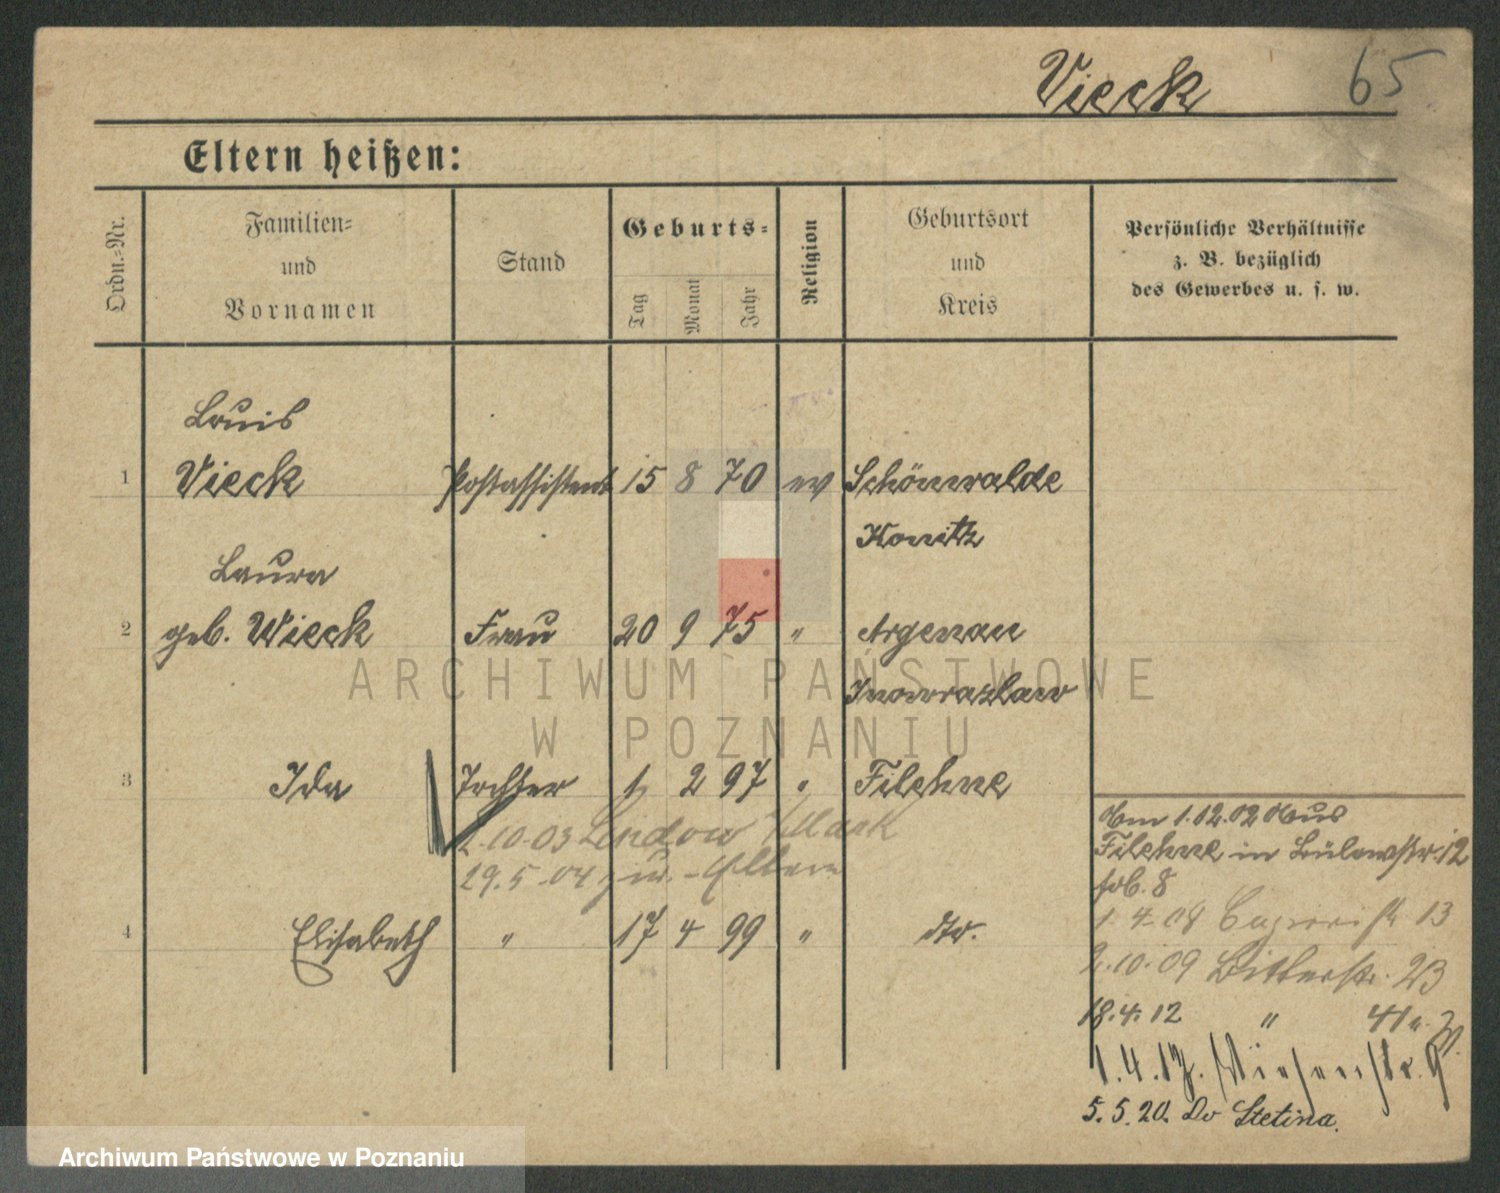 Vieck 65
Eltern heißen:
Ordn.=Nr.
Familien=
und
Vornamen
Stand
Geburts=
Tag
Monat
Jahr
Religion
Geburtsort
und
Kreis
Persönliche Verhältnisse
z. B. bezüglich
des Gewerbes u. s. w.
Louis
1 Vieck Postassistent 15 8 70 ev Schönwalde
Konitz
Laura
2 geb. Wieck Frau 20 9 75 " Argenau
Inowrazlaw
3 Ida Tochter 1 2 97 " Filehne
2.10.03 Lindow /Mark
29.5.04 zu. Eltern
4 Elisabeth " 17 4 99 " dto.
Am 1.12.02 Aus
Filehne in Bülowstr. 12
1.4.08 13
2.10.09 23
18.4.12 " 41
1.4.17. Wiesenstr. 9
5.5.20. Do Stetina.
ARCHIWUM PAŃSTWOWE
W POZNANIU
Archiwum Państwowe w Poznaniu